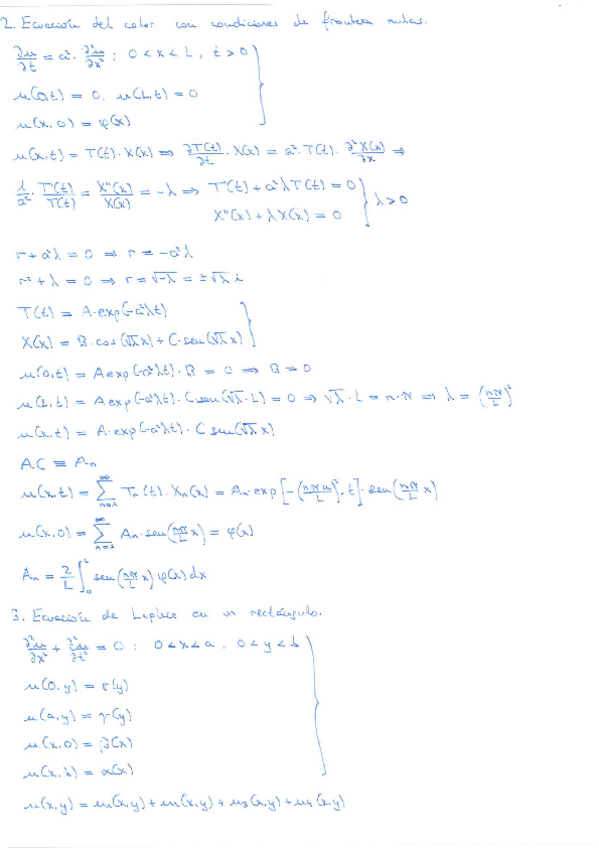 2. Ecuación del calor con condiciones de frontera nulas.
∂u/∂t = a² · ∂²u/∂x² ; 0 < x < L, t > 0
u(0,t) = 0, u(L,t) = 0
u(x,0) = φ(x)
u(x,t) = T(t) · X(x) ⇒ ∂T(t)/∂t · X(x) = a² · T(t) · ∂²X(x)/∂x ⇒
1/a² · T'(t)/T(t) = X''(x)/X(x) = -λ ⇒ T'(t) + a²λT(t) = 0
X''(x) + λX(x) = 0 } λ > 0
r + a²λ = 0 ⇒ r = -a²λ
r² + λ = 0 ⇒ r = √-λ = ±√λ i
T(t) = A·exp(-a²λt)
X(x) = B·cos(√λx) + C·sen(√λx)
u(0,t) = A exp(-a²λt) · B = 0 ⇒ B = 0
u(L,t) = A exp(-a²λt) · C sen(√λ·L) = 0 ⇒ √λ · L = n·π ⇒ λ = (nπ/L)²
u(x,t) = A·exp(-a²λt) · C sen(√λx)
A.C ≡ An
u(x,t) = ∑_{n=1}^{∞} Tn(t) · Xn(x) = An·exp[-(nπa/L)²·t]·sen(nπ/L x)
u(x,0) = ∑_{n=1}^{∞} An·sen(nπ/L x) = φ(x)
An = 2/L ∫_0^L sen(nπ/L x) φ(x) dx
3. Ecuación de Laplace en un rectángulo.
∂²u/∂x² + ∂²u/∂t² = 0 ; 0 < x < a, 0 < y < b
u(0,y) = σ(y)
u(a,y) = γ(y)
u(x,0) = β(x)
u(x,b) = α(x)
u(x,y) = u₁(x,y) + u₂(x,y) + u₃(x,y) + u₄(x,y)